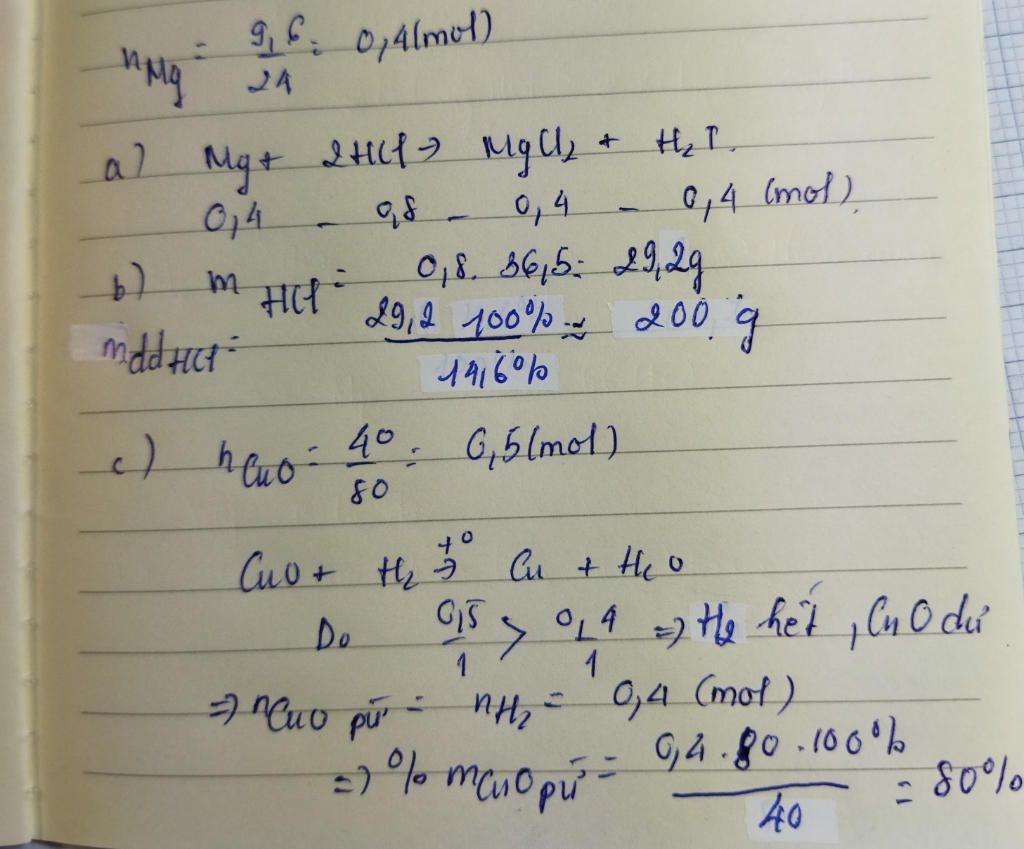 nMg = 9,6/24 = 0,4(mol)
a) Mg + 2HCl → MgCl2 + H2↑.
0,4 - 0,8 - 0,4 - 0,4 (mol).
b) mHCl = 0,8. 36,5 = 29,2g
mddHCl = 29,2 100%/14,6% = 200 g
c) nCuO = 40/80 = 0,5(mol)
CuO + H2 t°→ Cu + H2O
Do 0,5/1 > 0,4/1 => H2 hết, CuO dư
=> nCuO pứ = nH2 = 0,4 (mol)
=> % mCuO pứ = 0,4 . 80 . 100%/40 = 80%